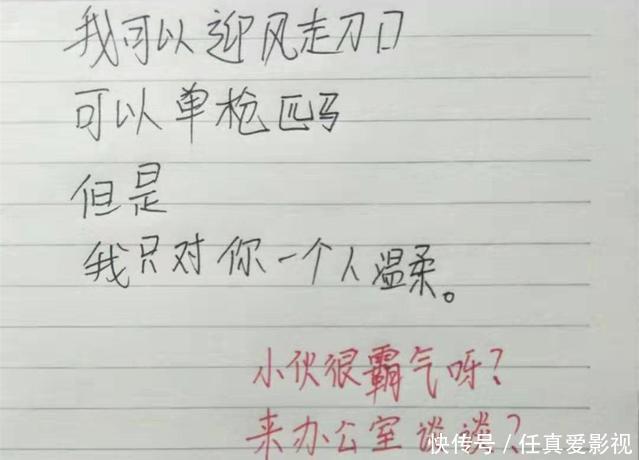 我可以迎风走刀口
可以单枪匹马
但是
我只对你一个人温柔。
小伙很霸气呀?
来办公室谈谈?
快传号/任真爱影视